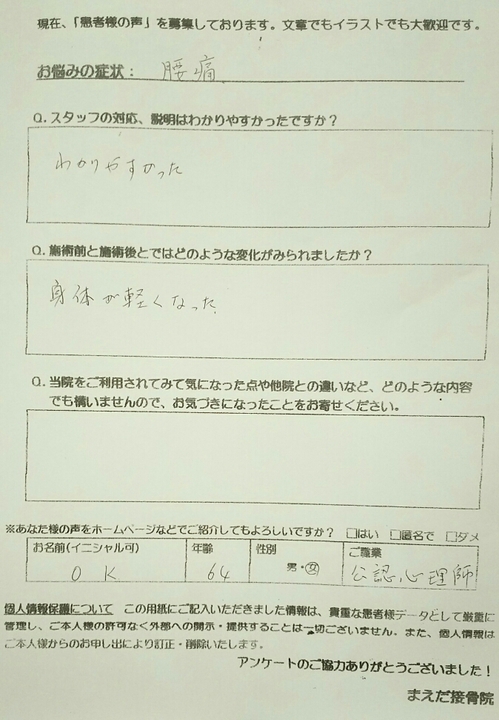 現在、「患者様の声」を募集しております。文章でもイラストでも大歓迎です。
お悩みの症状： 腰痛
Q. スタッフの対応、説明はわかりやすかったですか？
わかりやすかった
Q. 施術前と施術後とではどのような変化がみられましたか？
身体が軽くなった
Q. 当院をご利用されてみて気になった点や他院との違いなど、どのような内容
でも構いませんので、お気づきになったことをお寄せください。
※あなた様の声をホームページなどでご紹介してもよろしいですか？ □はい □匿名で □ダメ
お名前(イニシャル可) 年齢 性別 ご職業
O K 64 男・女 公認心理師
個人情報保護について この用紙にご記入いただきました情報は、貴重な患者様データとして厳重に
管理し、ご本人様の許可なく外部への開示・提供することは一切ございません。また、個人情報は
ご本人様からのお申し出により訂正・削除いたします。
アンケートのご協力ありがとうございました！
まえだ接骨院